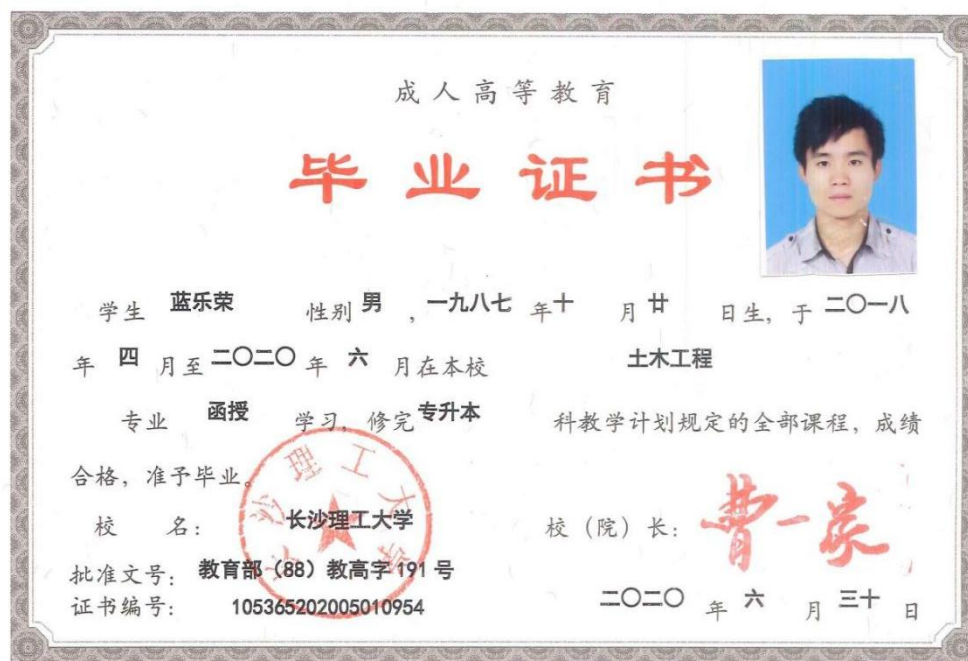 成人高等教育
毕业证书
学生 蓝乐荣 性别 男 ，一九八七 年 十 月 廿 日生，于 二〇一八
年 四 月至 二〇二〇 年 六 月在本校 土木工程
专业 函授 学习，修完 专升本 科教学计划规定的全部课程，成绩
合格，准予毕业。
长沙理工大学
校 名： 长沙理工大学
校（院）长： 曹一家
批准文号： 教育部（88）教高字 191 号
证书编号： 105365202005010954
二〇二〇 年 六 月 三十 日